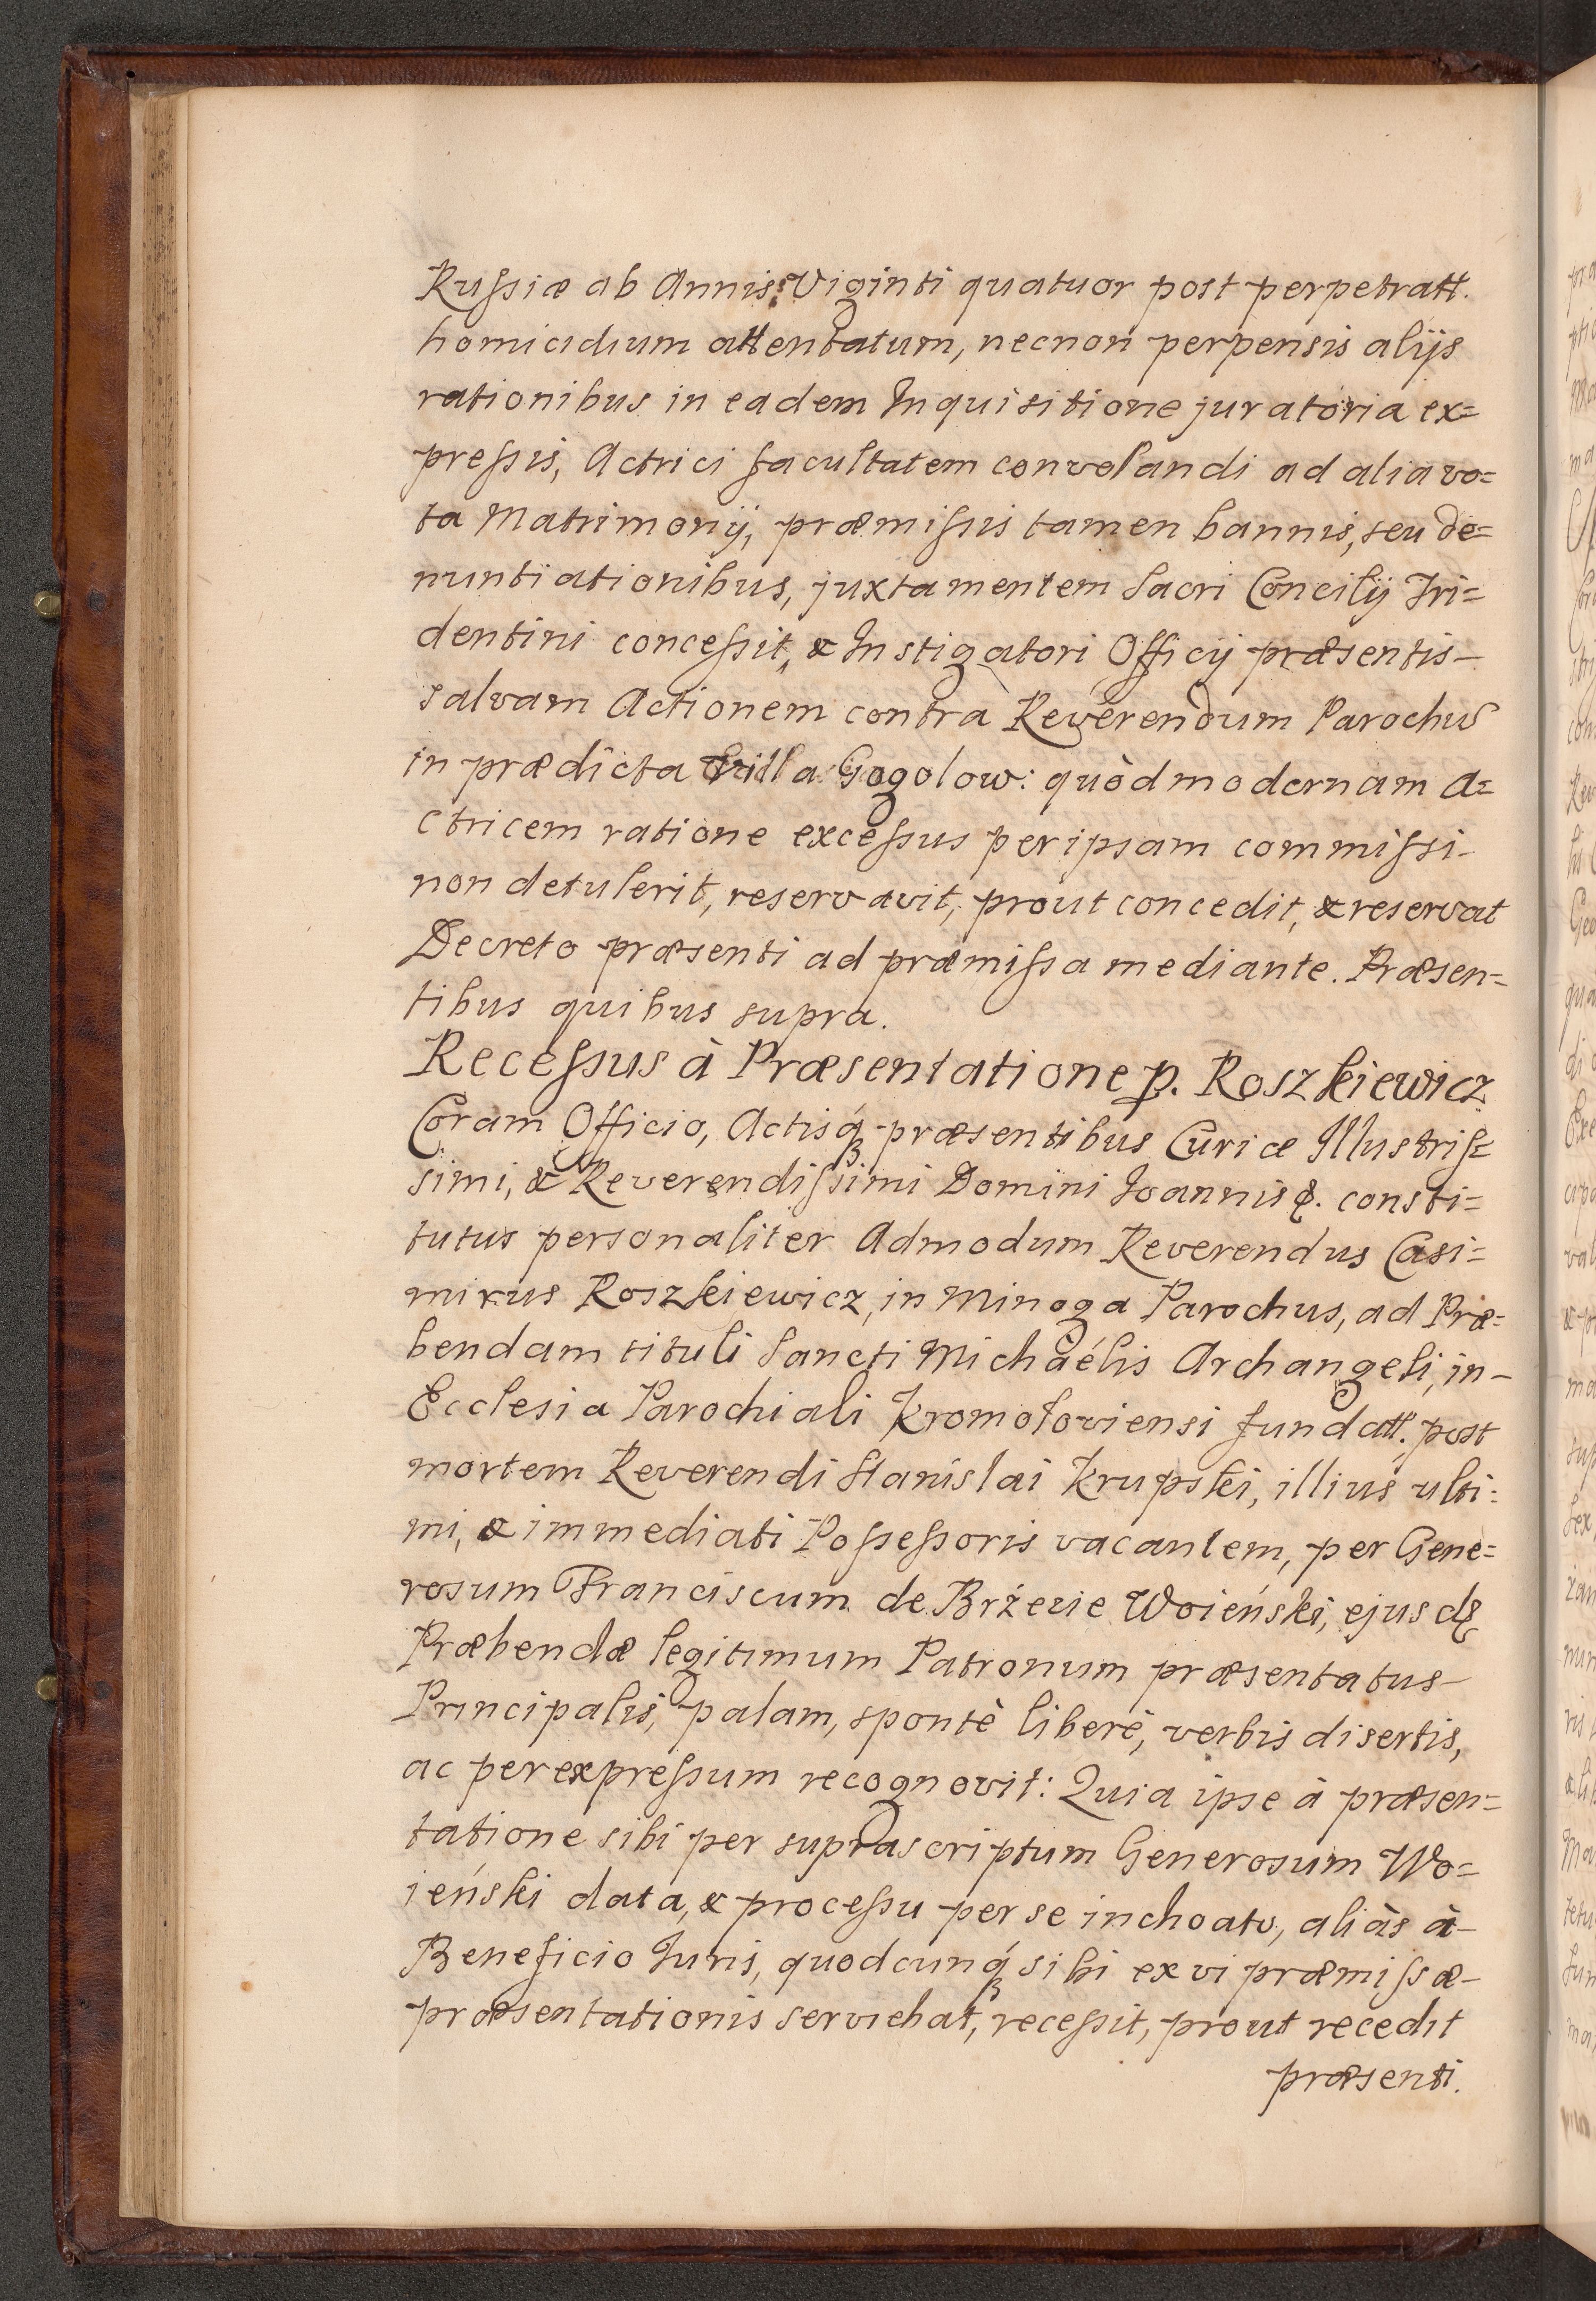 Rußiæ ab Annis Viginti quatuor post perpetratt.
homicidium attentatum, necnon perpensis alijs
rationibus in eadem Inquisitione juratoria ex=
preßis, Actrici facultatem convolandi ad alia vo=
ta Matrimonij, præmißis tamen bannis, seu de=
nuntiationibus, juxta mentem Sacri Concilij Tri=
dentini conceßit, & Instigatori Officij præsentis
salvam Actionem contra Reverendum Parochũ
in prædicta Villa Gogolow: quòd modernam A=
ctricem ratione exceßus per ipsam commißi
non detulerit, reservavit, prout concedit, & reservat
Decreto præsenti ad præmißa mediante. Præsen=
tibus quibus supra.
Receßus à Præsentatione p. Roszkiewicz
Coram Officio, Actisq́ præsentibus Curiæ Illustriſ=
simi, & Reverendißimi Domini Ioannis &. consti=
tutus personaliter Admodum Reverendus Casi=
mirus Roszkiewicz, in Minoga Parochus, ad Præ=
bendam tituli Sancti Michaélis Archangeli, in
Ecclesia Parochiali Kromoloviensi fundatt. post
mortem Reverendi Stanislai Krupski, illius ulti=
mi, & immediati Poßeßoris vacantem, per Gene=
rosum Franciscum de Brżezie Woieński, ejusdē
Præbendæ legitimum Patronum præsentatus
Principalis, palam, spontè liberè, verbis disertis,
ac per expreßum recognovit: Quia ipse à præsen=
tatione sibi per suprascriptum Generosum Wo=
ieński data, & proceßu per se inchoato, aliàs à
Beneficio Iuris, quodcunq́ sibi ex vi præmißæ
præsentationis serviebat, receßit, prout recedit
præsenti.